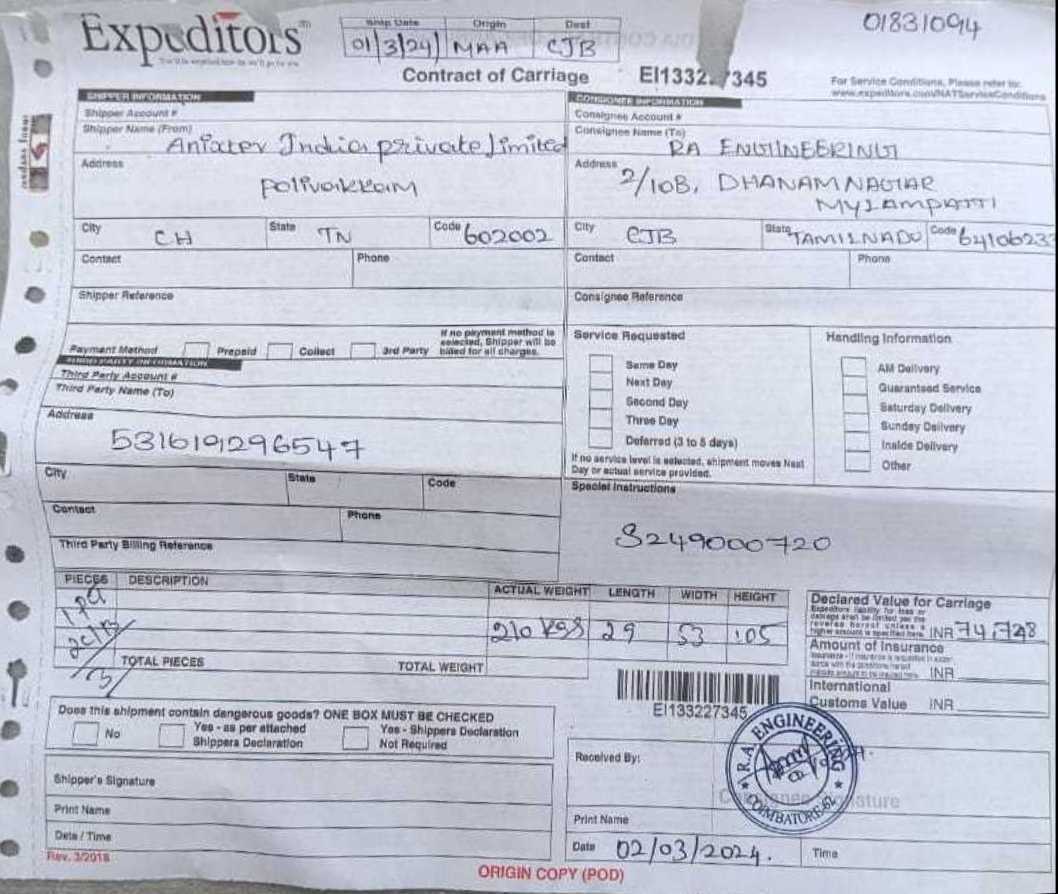 01831094
Expeditors
You'd be surprised how far we'll go for you.
Ship Date Origin Dest
01/3/24 MAA CJB
Contract of Carriage EI133227345
For Service Conditions, Please refer to:
www.expeditors.com/NATServiceConditions
SHIPPER INFORMATION
Shipper Account #
Shipper Name (From)
Anixter India private limited
Address
polivakkam
City CH State TN Code 602002
Contact Phone
Shipper Reference
Payment Method Prepaid Collect 3rd Party
If no payment method is
selected, Shipper will be
billed for all charges.
CONSIGNEE INFORMATION
Consignee Account #
Consignee Name (To)
RA ENGINEERING
Address
2/10B, DHANAM NAGAR
MYLAMPATTI
City CJB State TAMILNADU Code 64106233
Contact Phone
Consignee Reference
THIRD PARTY INFORMATION
Third Party Account #
Third Party Name (To)
Address
531619296547
City State Code
Contact Phone
Third Party Billing Reference
Service Requested
Same Day
Next Day
Second Day
Three Day
Deferred (3 to 5 days)
If no service level is selected, shipment moves Next
Day or actual service provided.
Handling Information
AM Delivery
Guaranteed Service
Saturday Delivery
Sunday Delivery
Inside Delivery
Other
Special Instructions
S249000720
PIECES DESCRIPTION ACTUAL WEIGHT LENGTH WIDTH HEIGHT
210 kgs 29 53 105
TOTAL PIECES TOTAL WEIGHT
3
Declared Value for Carriage
Expeditors liability for loss or
damage shall be limited per the
reverse hereof unless a
higher amount is specified here. INR 74,748
Amount of Insurance
INR
International
Customs Value INR
EI133227345
Does this shipment contain dangerous goods? ONE BOX MUST BE CHECKED
No
Yes - as per attached
Shippers Declaration
Yes - Shippers Declaration
Not Required
Shipper's Signature
Print Name
Date / Time
Received By:
R.A. ENGINEERING
COIMBATORE-62
Consignee Signature
Print Name
Date 02/03/2024. Time
Rev. 3/2018
ORIGIN COPY (POD)